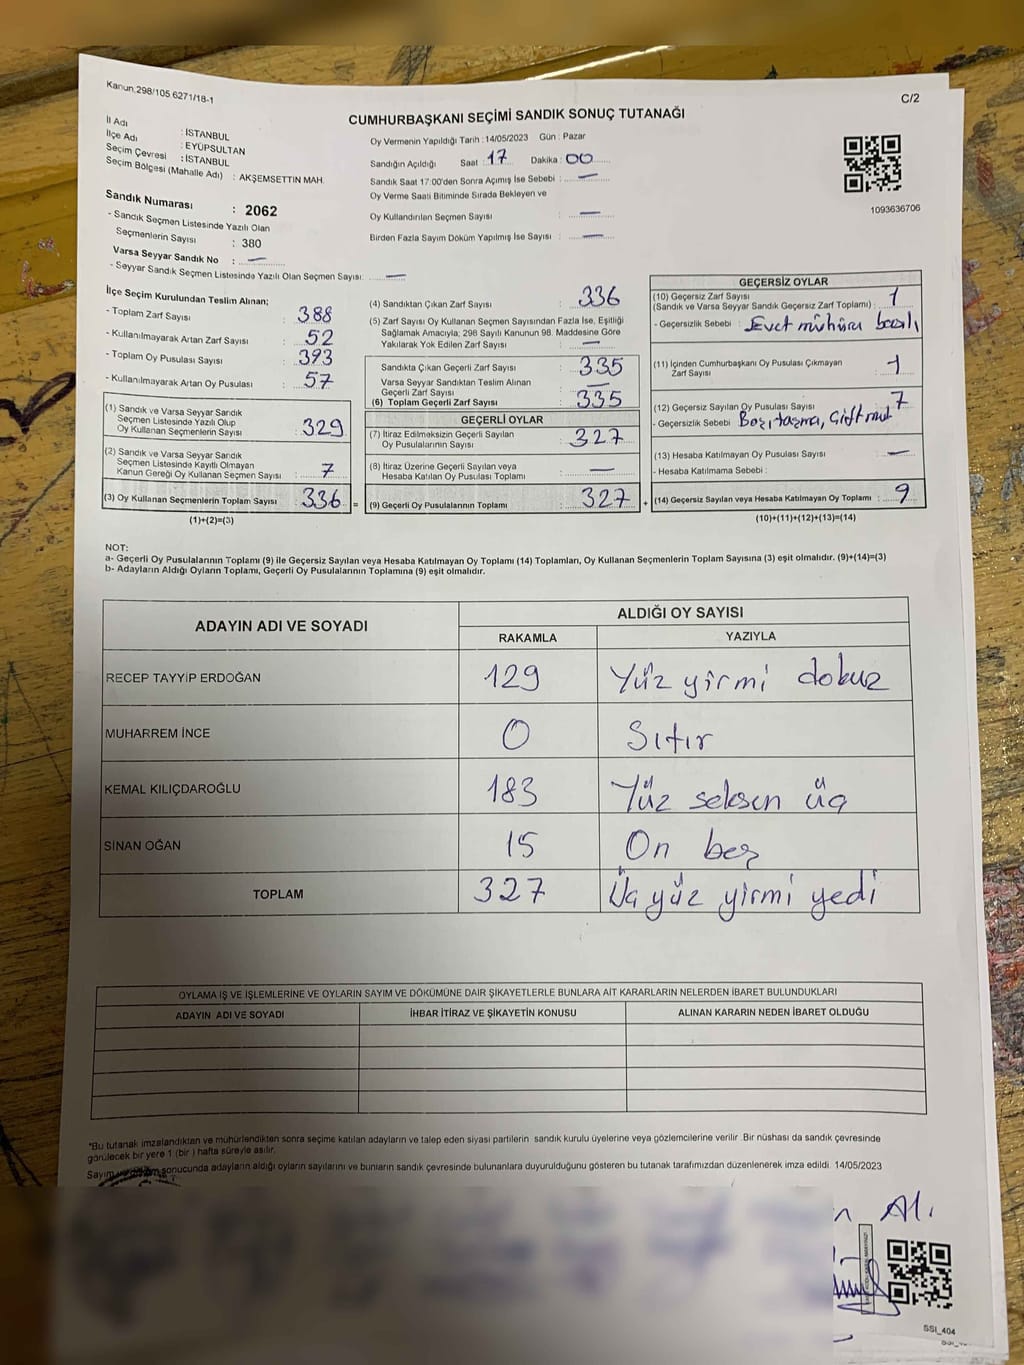 Kanun.298/105 6271/18-1
C/2
CUMHURBAŞKANI SEÇİMİ SANDIK SONUÇ TUTANAĞI
İl Adı : İSTANBUL
İlçe Adı : EYÜPSULTAN
Seçim Çevresi : İSTANBUL
Seçim Bölgesi (Mahalle Adı) : AKŞEMSETTİN MAH.
Sandık Numarası : 2062
- Sandık Seçmen Listesinde Yazılı Olan
Seçmenlerin Sayısı : 380
Varsa Seyyar Sandık No : —
- Seyyar Sandık Seçmen Listesinde Yazılı Olan Seçmen Sayısı: —
Oy Vermenin Yapıldığı Tarih :14/05/2023 Gün : Pazar
Sandığın Açıldığı Saat : 17 Dakika : 00
Sandık Saat 17:00'den Sonra Açımış İse Sebebi : —
Oy Verme Saati Bitiminde Sırada Bekleyen ve
Oy Kullandırılan Seçmen Sayısı : —
Birden Fazla Sayım Döküm Yapılmış İse Sayısı : —
1093636706
İlçe Seçim Kurulundan Teslim Alınan;
- Toplam Zarf Sayısı : 388
- Kullanılmayarak Artan Zarf Sayısı : 52
- Toplam Oy Pusulası Sayısı : 393
- Kullanılmayarak Artan Oy Pusulası : 57
(1) Sandık ve Varsa Seyyar Sandık
Seçmen Listesinde Yazılı Olup
Oy Kullanan Seçmenlerin Sayısı : 329
(2) Sandık ve Varsa Seyyar Sandık
Seçmen Listesinde Kayıtlı Olmayan
Kanun Gereği Oy Kullanan Seçmen Sayısı : 7
(3) Oy Kullanan Seçmenlerin Toplam Sayısı : 336 =
(1)+(2)=(3)
(4) Sandıktan Çıkan Zarf Sayısı : 336
(5) Zarf Sayısı Oy Kullanan Seçmen Sayısından Fazla İse, Eşitliği
Sağlamak Amacıyla, 298 Sayılı Kanunun 98. Maddesine Göre
Yakılarak Yok Edilen Zarf Sayısı : —
Sandıkta Çıkan Geçerli Zarf Sayısı : 335
Varsa Seyyar Sandıktan Teslim Alınan
Geçerli Zarf Sayısı : —
(6) Toplam Geçerli Zarf Sayısı : 335
GEÇERLİ OYLAR
(7) İtiraz Edilmeksizin Geçerli Sayılan
Oy Pusulalarının Sayısı : 327
(8) İtiraz Üzerine Geçerli Sayılan veya
Hesaba Katılan Oy Pusulası Toplamı : —
(9) Geçerli Oy Pusulalarının Toplamı : 327 +
GEÇERSİZ OYLAR
(10) Geçersiz Zarf Sayısı
(Sandık ve Varsa Seyyar Sandık Geçersiz Zarf Toplamı) : 1
- Geçersizlik Sebebi : Evet mühürü basılı
(11) İçinden Cumhurbaşkanı Oy Pusulası Çıkmayan
Zarf Sayısı : 1
(12) Geçersiz Sayılan Oy Pusulası Sayısı : 7
- Geçersizlik Sebebi
(13) Hesaba Katılmayan Oy Pusulası Sayısı : —
- Hesaba Katılmama Sebebi :
(14) Geçersiz Sayılan veya Hesaba Katılmayan Oy Toplamı : 9
(10)+(11)+(12)+(13)=(14)
NOT:
a- Geçerli Oy Pusulalarının Toplamı (9) ile Geçersiz Sayılan veya Hesaba Katılmayan Oy Toplamı (14) Toplamları, Oy Kullanan Seçmenlerin Toplam Sayısına (3) eşit olmalıdır. (9)+(14)=(3)
b- Adayların Aldığı Oyların Toplamı, Geçerli Oy Pusulalarının Toplamına (9) eşit olmalıdır.
ADAYIN ADI VE SOYADI
ALDIĞI OY SAYISI
RAKAMLA YAZIYLA
RECEP TAYYİP ERDOĞAN 129 Yüz yirmi dokuz
MUHARREM İNCE 0 Sıfır
KEMAL KILIÇDAROĞLU 183 Yüz seksen üç
SİNAN OĞAN 15 On beş
TOPLAM 327 Üç yüz yirmi yedi
OYLAMA İŞ VE İŞLEMLERİNE VE OYLARIN SAYIM VE DÖKÜMÜNE DAİR ŞİKAYETLERLE BUNLARA AİT KARARLARIN NELERDEN İBARET BULUNDUKLARI
ADAYIN ADI VE SOYADI İHBAR İTİRAZ VE ŞİKAYETİN KONUSU ALINAN KARARIN NEDEN İBARET OLDUĞU
*Bu tutanak imzalandıktan ve mühürlendikten sonra seçime katılan adayların ve talep eden siyasi partilerin sandık kurulu üyelerine veya gözlemcilerine verilir. Bir nüshası da sandık çevresinde
görülecek bir yere 1 (bir ) hafta süreyle asılır.
Sayım sonucunda adayların aldığı oyların sayılarını ve bunların sandık çevresinde bulunanlara duyurulduğunu gösteren bu tutanak tarafımızdan düzenlenerek imza edildi. 14/05/2023
Ali
SSI_404